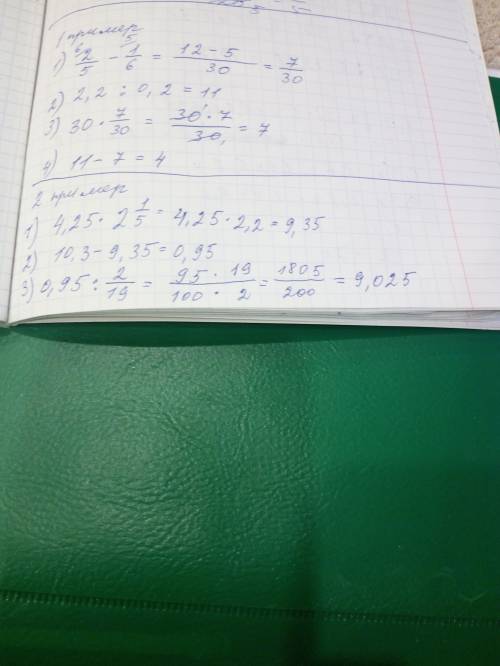 1 пример
1) 2/5 - 1/6 = (12 - 5)/30 = 7/30
2) 2,2 : 0,2 = 11
3) 30 · 7/30 = (30 · 7)/30 = 7
4) 11 - 7 = 4
2 пример
1) 4,25 · 2 1/5 = 4,25 · 2,2 = 9,35
2) 10,3 - 9,35 = 0,95
3) 0,95 : 2/19 = (95 · 19)/(100 · 2) = 1805/200 = 9,025